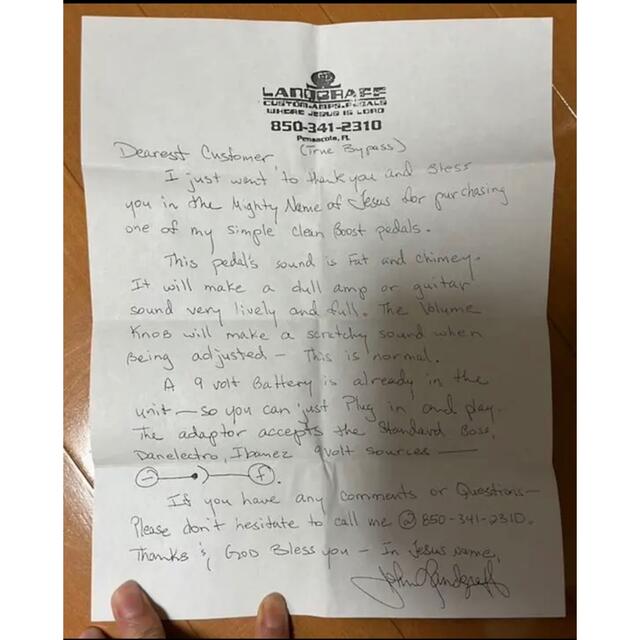 LANDGRAFF
CUSTOM.AMPS.PEDALS
WHERE JESUS IS LORD
850-341-2310
Pensacola, FL
Dearest Customer (True Bypass)
I just want to thank you and Bless
you in the Mighty Name of Jesus for purchasing
one of my simple clean Boost pedals.
This pedal's sound is Fat and chimey.
It will make a dull amp or guitar
sound very lively and full. The Volume
Knob will make a scratchy sound when
Being adjusted - This is normal.
A 9 volt Battery is already in the
unit - so you can just Plug in and play.
The adaptor accepts the Standard Boss,
Danelectro, Ibanez 9volt sources -
If you have any comments or Questions -
Please don't hesitate to call me @ 850-341-2310.
Thanks & GOD Bless you - In Jesus name,
John Landgraff